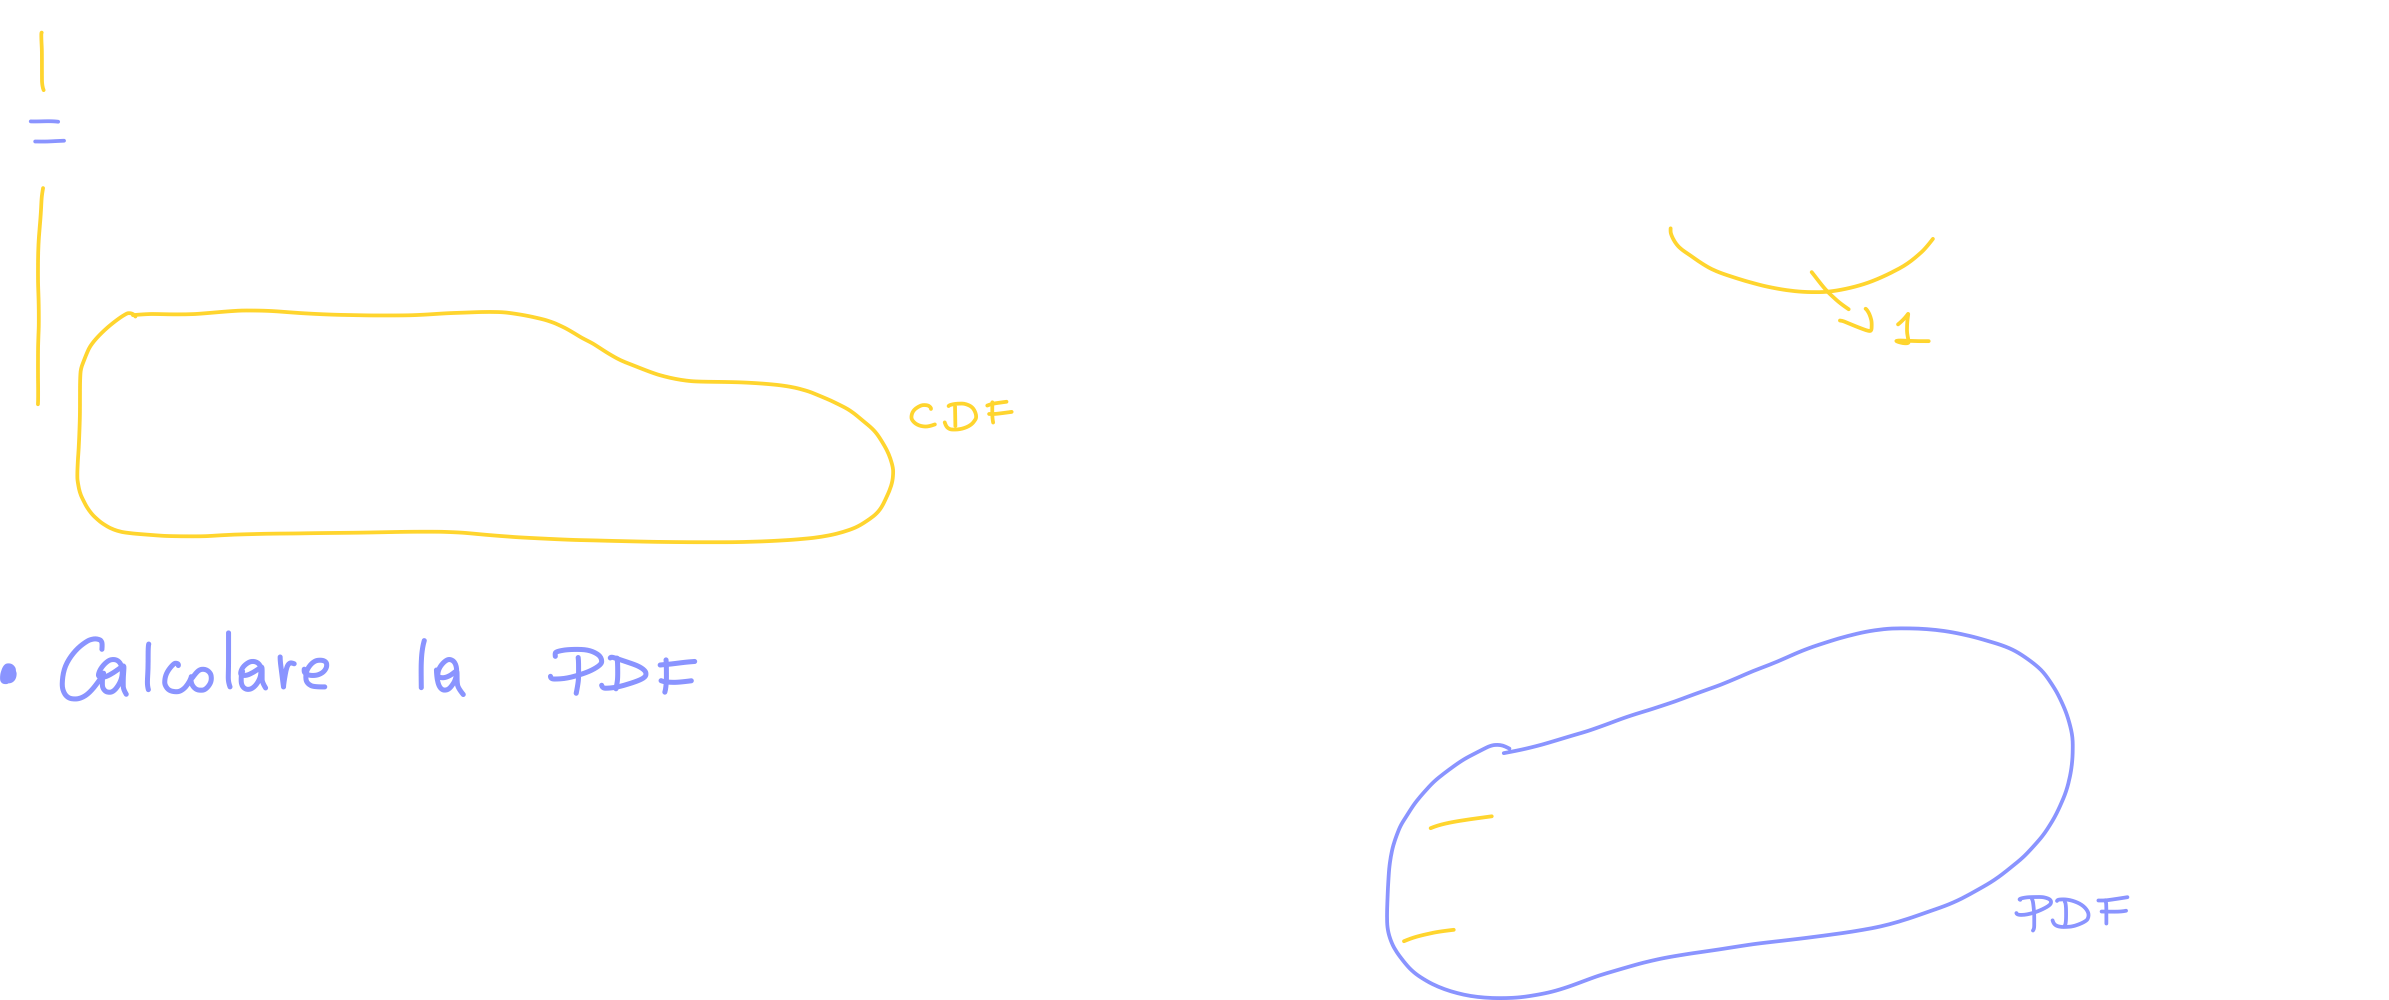 =
1
CDF
• Calcolare la PDF
PDF